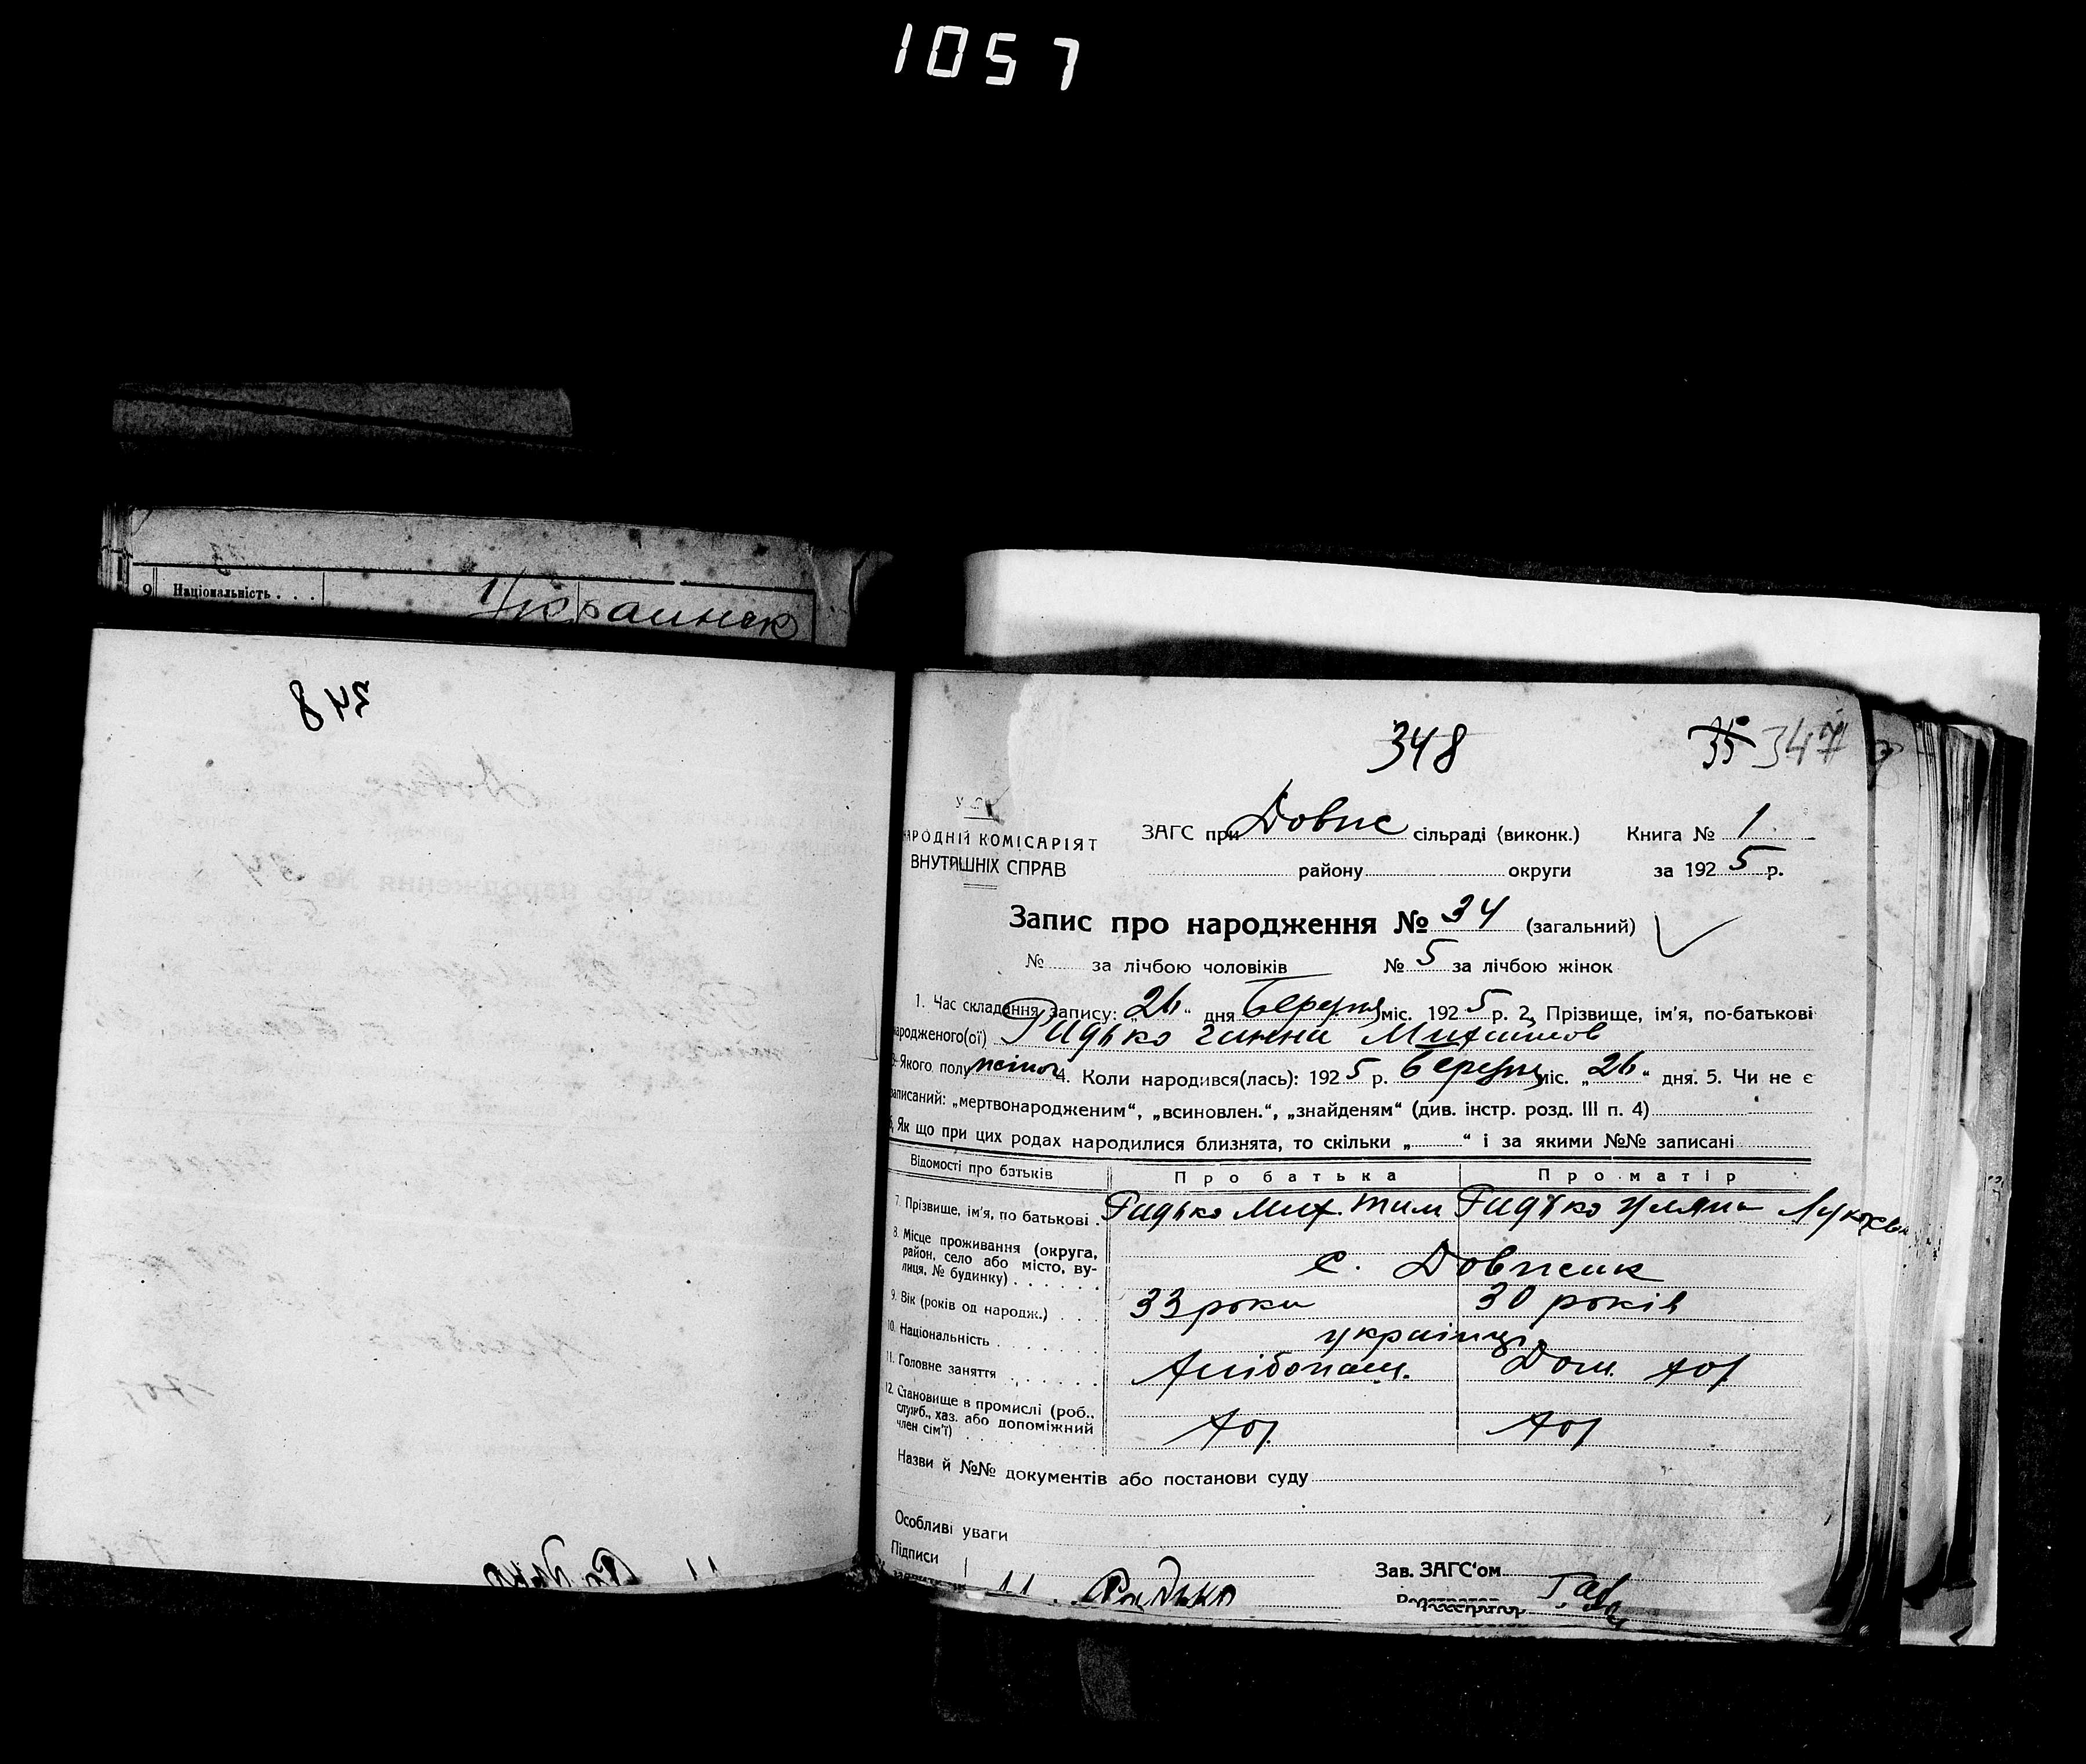 1057
9 Національність . . .
Украинск
348
348
35 347
НАРОДНІЙ КОМІСАРІЯТ
ВНУТРІШНІХ СПРАВ
ЗАГС при Довпс сільраді (виконк.) Книга № 1
району округи за 1925 р.
Запис про народження № 34 (загальний)
№ за лічбою чоловіків № 5 за лічбою жінок
1. Час складання запису: „26“ дня березня міс. 1925 р. 2. Прізвище, ім'я, по-батькові
народженого(ої) Радько Ганна Михайлов
3. Якого полу жіноч 4. Коли народився(лась): 1925 р. березня міс. „26“ дня. 5. Чи не є
записаний: „мертвонародженим“, „всиновлен.“, „знайденям“ (див. інстр. розд. III п. 4)
6. Як що при цих родах народилися близнята, то скільки „ “ і за якими №№ записані
Відомості про батьків Про батька Про матір
7. Прізвище, ім'я, по батькові . Радько Мих. Тим Радько Уляна
8. Місце проживання (округа,
район, село або місто, ву-
лиця, № будинку) . . . . .
с. Довпсик
9. Вік (років од народж.) . . . 33 роки 30 років
10. Національність . . . . . . українці
11. Головне заняття . . . . . . хліборашт. Дом. хоз.
12. Становище в промислі (роб.,
служб., хаз. або допоміжний
член сім'ї) . . . . . . . .
хоз. хоз
Назви й №№ документів або постанови суду
Особливі уваги
Підписи
Зав. ЗАГС'ом
М. Радько
Реєстратор